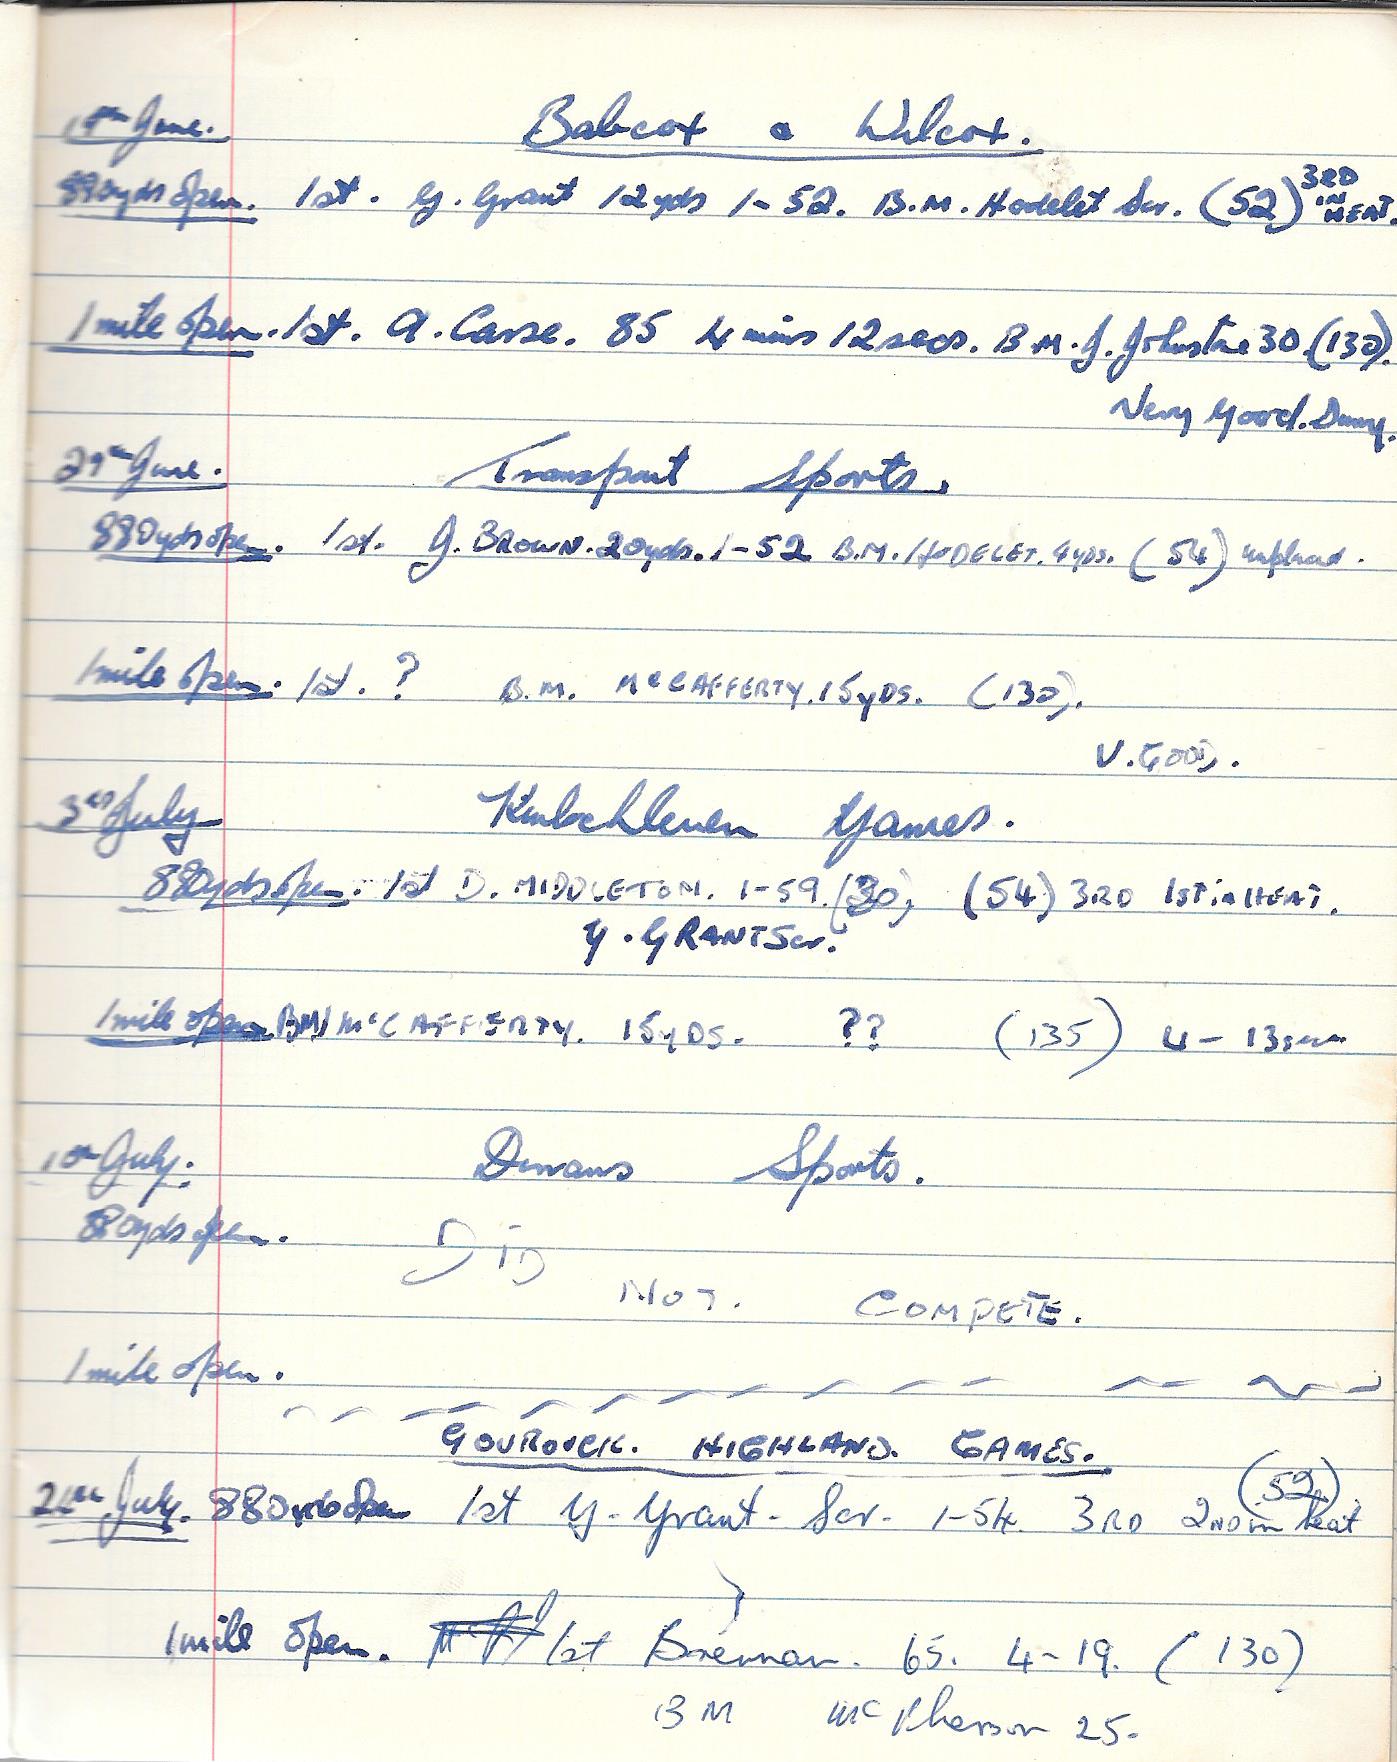 June. Babcox & Wilcox.
880yds open. 1st. G. Grant 12yds 1-52. B.M. Hodelet Scr. (52) 3RD IN HEAT.
1 mile open. 1st. A. Carse. 85 4 mins 12 secs. B.M. J. Johnstne 30. (130).
Very Good.
29th June. Transport Sports.
880yds open. 1st. J. BROWN. 20yds. 1-52 B.M. HODELET. 4yds. (54) unplaced.
1 mile open. 1st. ? B.M. McCAFFERTY. 15yDS. (130).
V. GOOD.
3rd July Kinlochleven Games.
880yds open. 1st D. MIDDLETON. 1-59. (30) (54) 3RD 1st in HEAT.
G. GRANT Scr.
1 mile open BM McCAFFERTY. 15yDS. ?? (135) 4-13
10th July. Sports.
880yds open. DID
NOT. COMPETE.
1 mile open.
GOUROUCK. HIGHLAND. GAMES.
July. 880yds open 1st G. Grant - Scr. 1-54. 3RD 2ND in heat (52)
1 mile open. 1st Brennan. 65. 4-19. (130)
BM McPherson 25.